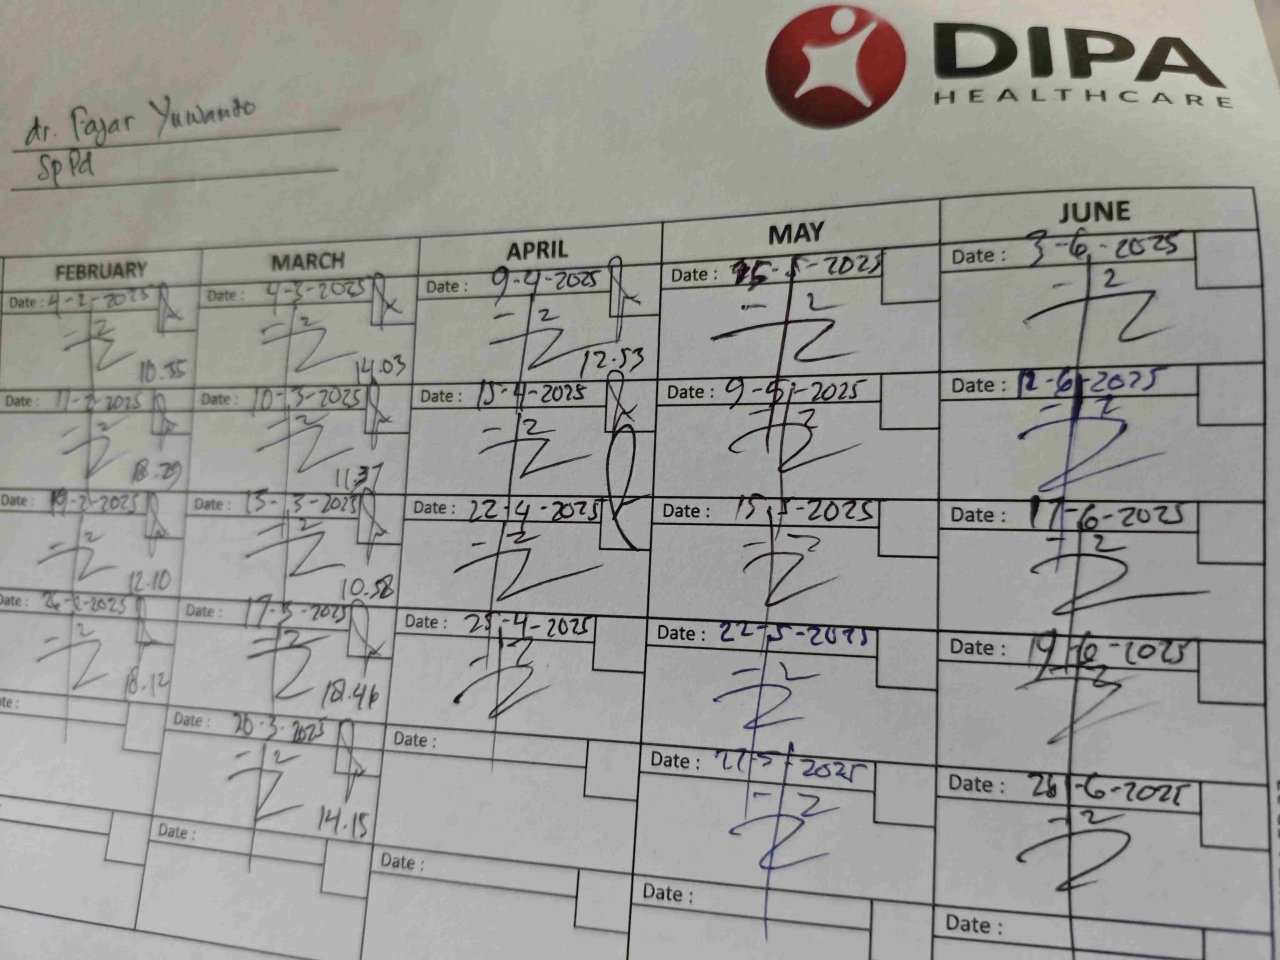 DIPA
HEALTHCARE
dr. Fajar Yuwando
SpPd
FEBRUARY MARCH APRIL MAY JUNE
Date : 4-2-2025 Date : 4-3-2025 Date : 9-4-2025 Date : 5-2025 Date : 3-6-2025
10.35 14.03 12.53
Date : 11-2-2025 Date : 10-3-2025 Date : 15-4-2025 Date : 9-5-2025 Date : 12-6-2025
18.29 11.37
Date : 19-2-2025 Date : 15-3-2025 Date : 22-4-2025 Date : 15-5-2025 Date : 17-6-2025
12.10 10.58
Date : 26-2-2025 Date : 17-3-2025 Date : 25-4-2025 Date : 22-5-2025 Date : 19-6-2025
18.12 18.46
Date : 20-3-2025 Date : Date : 27-5-2025 Date : 26-6-2025
14.15
Date : Date : Date : Date :